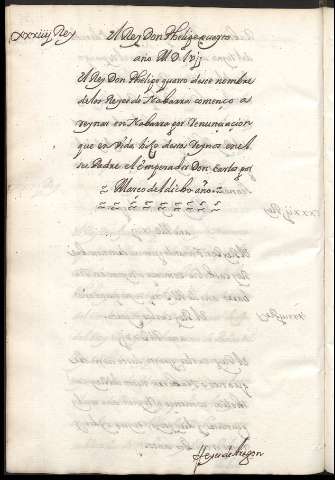 xxxiiij Rey
El Rey Don Phelipe quarto
año M D Lvij
El Rey Don Phelipe quarto deste nombre
de los Reyes de Nabarra comenco a
reynar en Nabarra por renunciacion
que en vida hiço destos Reynos en el
su Padre el Emperador Don Carlos por
Março del dicho año
Reyes de Aragon